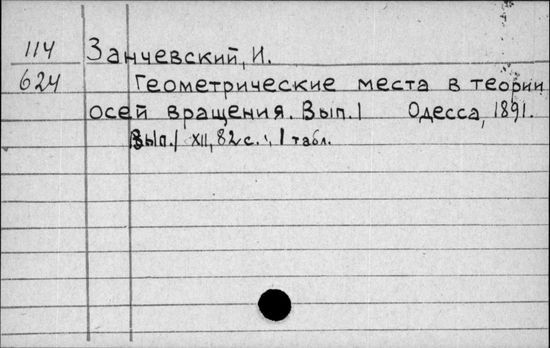 114 Занчевский, И.
624 Геометрические места в теории
осей вращения. Вып. I Одесса, 1891.
Вып. I XII, 82 с., 1 табл.